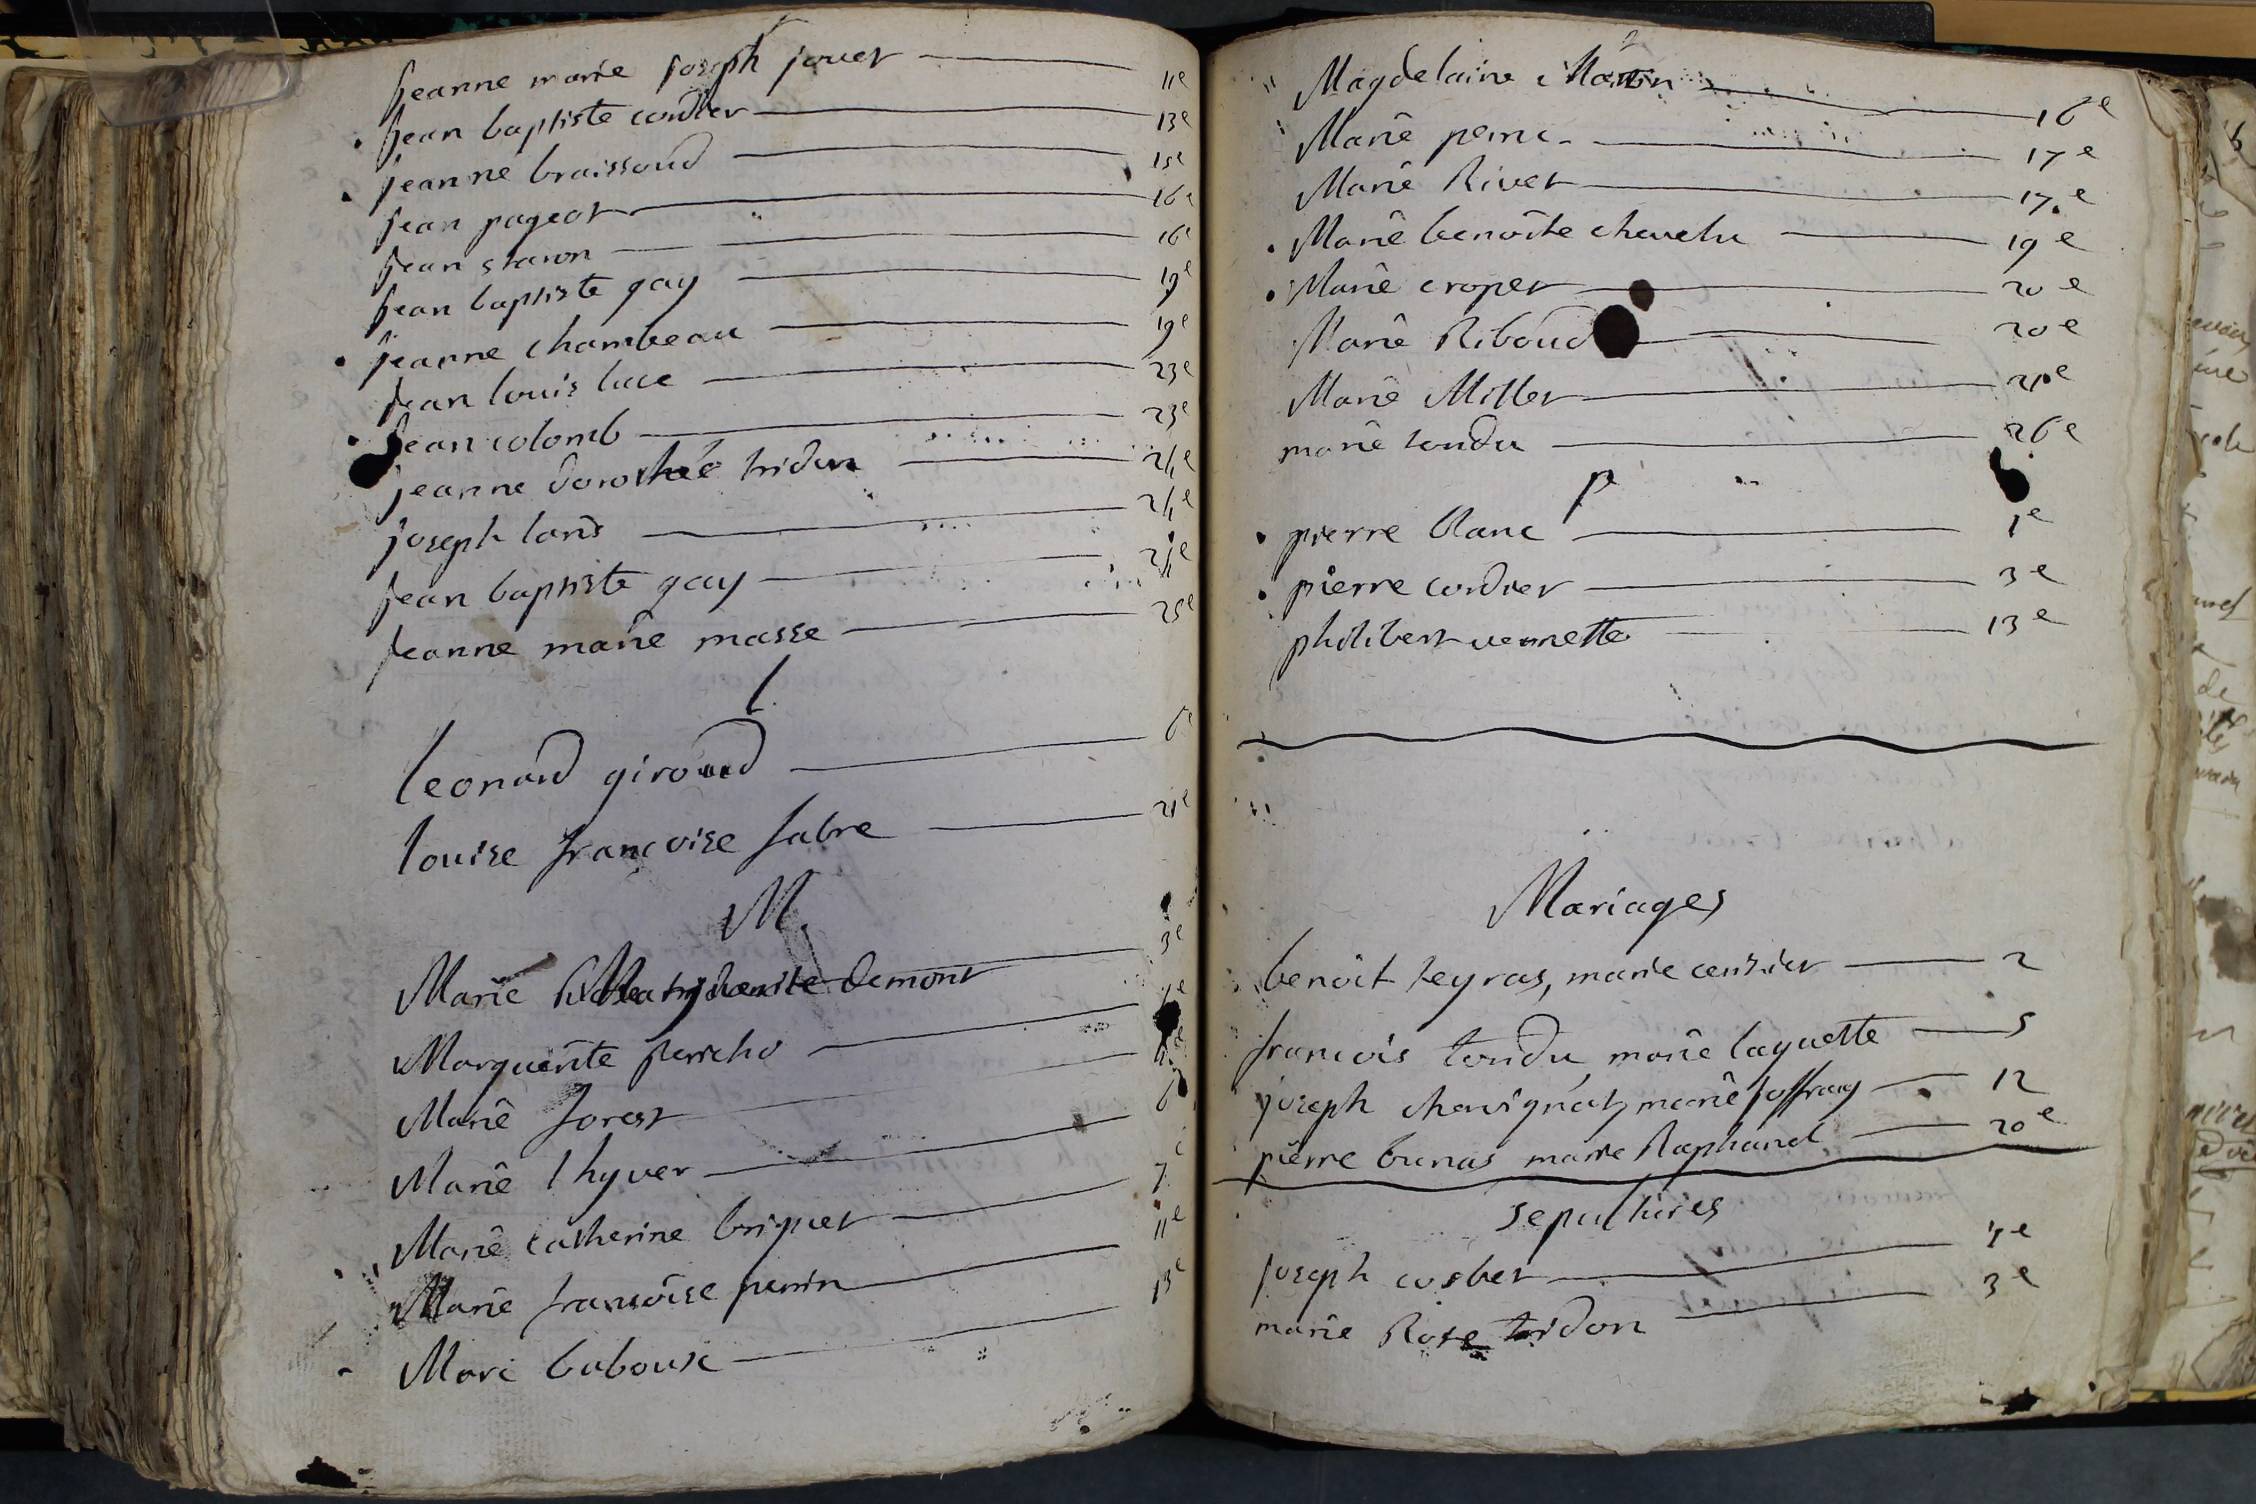 jeanne marie joseph jouet 11e
jean baptiste cordier 13e
jeanne braissoud 15e
jean pageot 16e
jean staron 16e
jean baptiste gay 19e
jeanne chambeau 19e
jean louis luce 23e
jean colomb 23e
jeanne dorothée tridon 24e
joseph laris 24e
jean baptiste gay 24e
jeanne marie masse 25e
l.
leonard giroud 6e
louise francoise fabre 21e
M.
Marie Marguerite demont 3e
Marguerite perricho
Marie forest
Marie thyver 6
Marie catherine briquet 7e
Marie francoise perrin 11e
Marc babouse 13e
Magdelaine Morin 16e
Marie perric 17e
Marie Rivet 17.e
Marie benoite chevelu 19e
Marie cropet 20e
Marie Riboud 20e
Marie Millet 21e
marie tondu 26e
p
pierre blanc 1e
pierre cordier 3e
philibert vernette 13e
Mariages
benoit teyras, marie cenzier 2
francois tondu marie laguette 5
joseph chavignat, marie joffray 12
pierre bunas marie Raphanel 20e
sepultures
joseph cosbet 1e
marie Rose tridon 3e